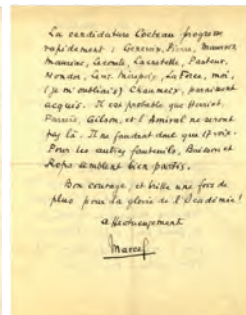 La candidature Cocteau progresse
rapidement : Genevoix, Maurois,
Mauriac, Lecomte, Lacretelle, Pasteur,
Mondor, Lévis Mirepoix, La Force, moi,
(je m'oubliais) Chaumeix, paraissent
acquis. Il est probable que Herriot,
Farrère, Gilson, et l'Amiral ne seront
pas là. Il ne faudrait donc que 17 voix.
Pour les autres fauteuils, Buisson et
Rops semblent bien partis.
Bon courage, et brille une fois de
plus pour la gloire de l'Académie !
affectueusement
Marcel